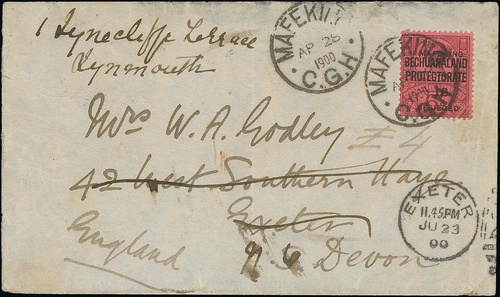 1 Lynecliffe Terrace
Lynmouth
MAFEKING
AP 26
1900
C.G.H
MAFEKING
1900
C.G.H
BECHUANALAND
PROTECTORATE
BESIEGED
Mrs W. A. Godley
£4
42 West Southern Haye
Exeter
England
N. Devon
EXETER
11.45PM
JU 23
00